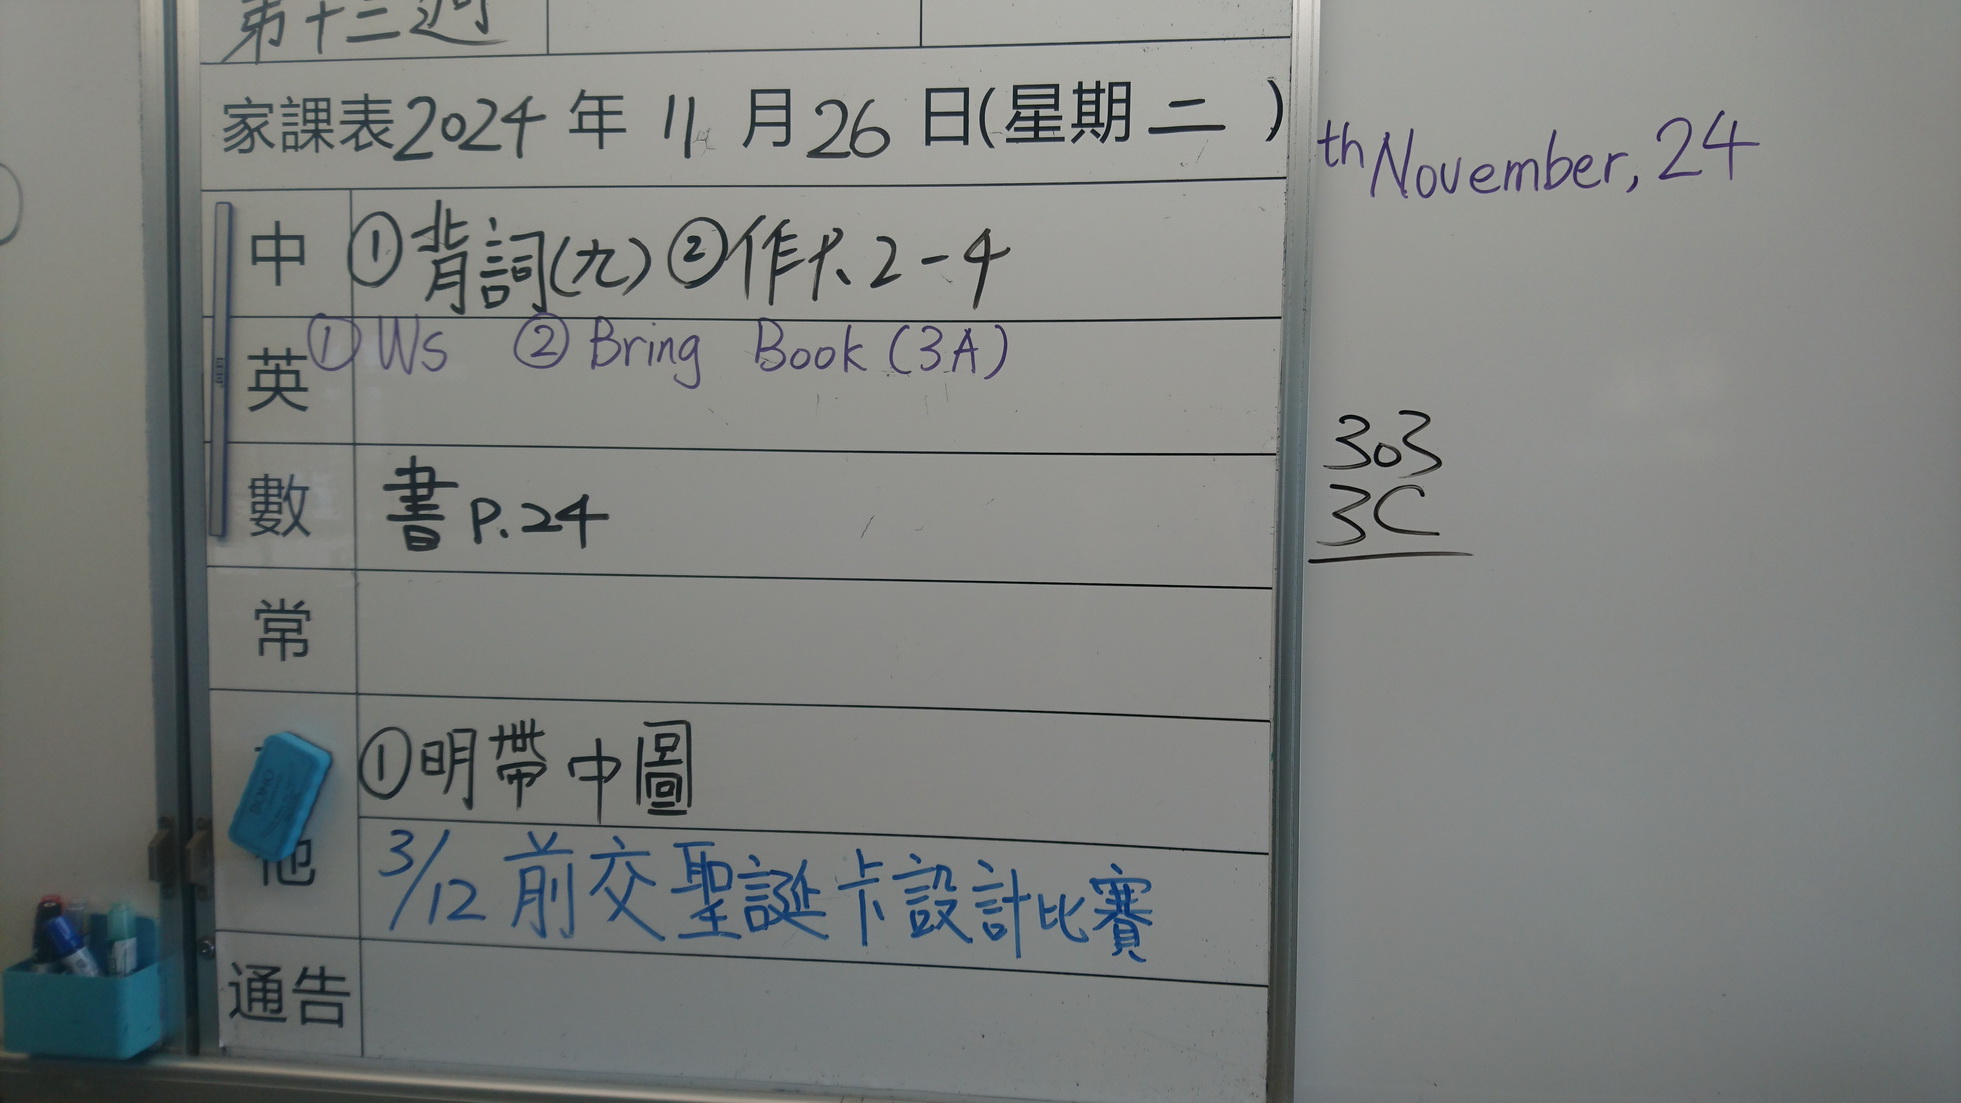 第十三週
家課表2024年11月26日(星期二)
th November, 24
中 ①背詞(九)②作大2-4
英 ①Ws ②Bring Book (3A)
數 書 P.24
303
3C
常
①明帶中圖
他 3/12前交聖誕卡設計比賽
通告